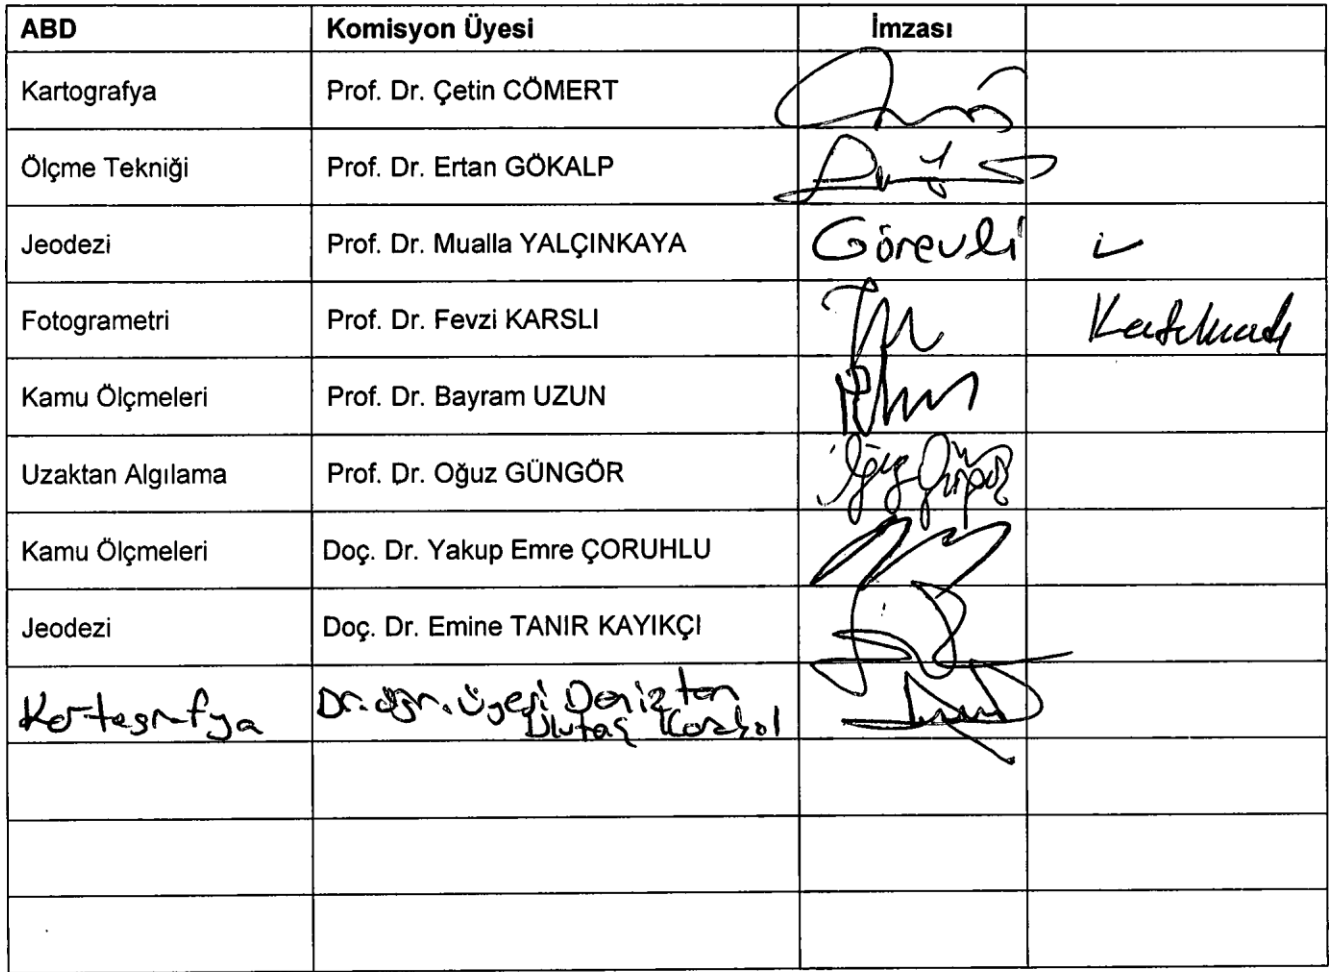 ABD Komisyon Üyesi İmzası
Kartografya Prof. Dr. Çetin CÖMERT
Ölçme Tekniği Prof. Dr. Ertan GÖKALP
Jeodezi Prof. Dr. Mualla YALÇINKAYA Görevli
Fotogrametri Prof. Dr. Fevzi KARSLI
Kamu Ölçmeleri Prof. Dr. Bayram UZUN
Uzaktan Algılama Prof. Dr. Oğuz GÜNGÖR
Kamu Ölçmeleri Doç. Dr. Yakup Emre ÇORUHLU
Jeodezi Doç. Dr. Emine TANIR KAYIKÇI
Kartografya Dr. Öğr. Üyesi Deniztan
Ulutaş Karakol